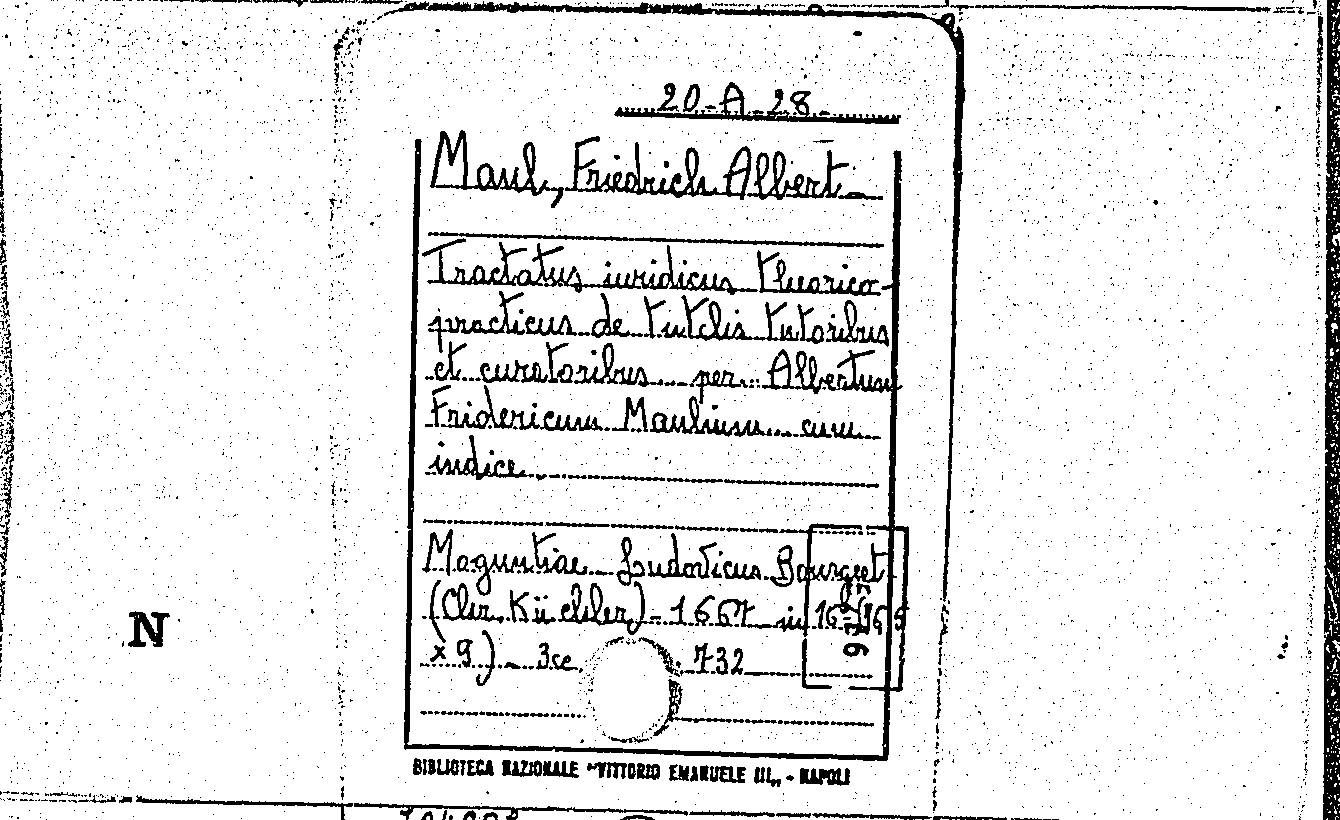 20-A-28-
Maul, Friedrich Albert -
Tractatus iuridicus theorico-
practicus de tutelis tutoribus
et curatoribus per Albertum
Fridericum Maulium cum
indice.
Moguntiae Ludovicus Bourguet
(Chr. Küchler) - 1667 in 16º (16,5
x 9) - 3ce. 732
N
BIBLIOTECA NAZIONALE "VITTORIO EMANUELE III„ - NAPOLI